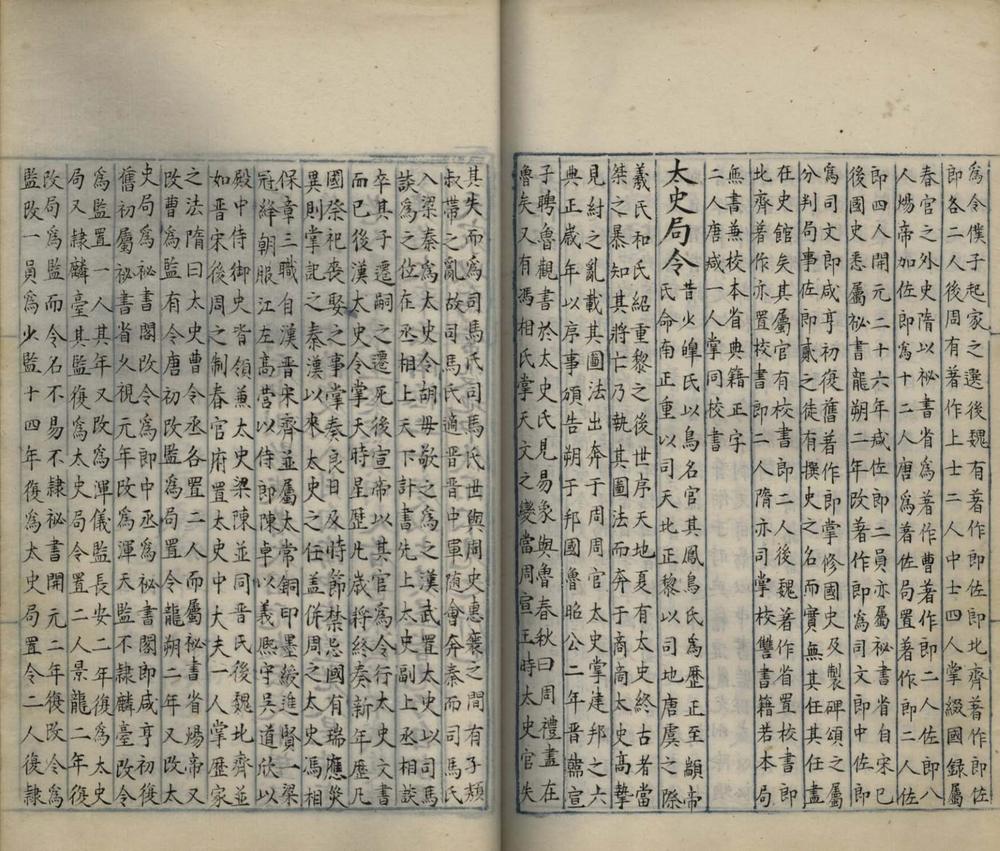 為令僕子起家之選後魏有著作郎佐郎北齊著作郎佐
郎各二人後周有著作上士二人中士四人掌綴國録屬
春官之外史隋以祕書省為著作曹著作郎二人佐郎八
人煬帝加佐郎為十二人唐為著佐局置著作郎二人佐
郎四人開元二十六年咸佐郎二員亦屬祕書省自宋已
後國史悉屬祕書龍朔二年改著作郎為司文郎中佐郎
為司文郎咸亨初復舊著作郎掌修國史及製碑頌之屬
分判局事佐郎貳之徒有撰史之名而實無其任其任盡
在史館矣其屬官有校書郎二人後魏著作省置校書郎
北齊著作亦置校書郎二人隋亦司掌校讎書籍若本局
無書兼校本省典籍正字
二人唐咸一人掌同校書
太史局令昔少皥氏以鳥名官其鳳鳥氏為歷正至顓帝
氏命南正重以司天北正黎以司地唐虞之際
羲氏和氏紹重黎之後世序天地夏有太史終古者當
桀之暴知其將亡乃執其圖法而奔于商商太史高摯
見紂之亂載其圖法出奔于周周官太史掌建邦之六
典正歲年以序事頒告朔于邦國魯昭公二年晉韓宣
子聘魯觀書於太史氏見易象與魯春秋曰周禮盡在
魯矣又有馮相氏掌天文之變當周宣王時太史官失
其失而為司馬氏司馬氏世與周史惠襄之間有子頹
叔帶之亂故司馬氏適晉晉中軍隨會奔秦而司馬氏
入梁秦為太史令胡母敬之為之漢武置太史公以司馬
談為之位在丞相上天下計書先上太史副上丞相談
卒其子遷嗣之遷死後宣帝以其官為令行太史文書
而已後漢太史令掌天時星歷凡歲將終奏新年歷凡
國祭祀喪娶之事掌奏良日及時節禁忌國有瑞應災
異則掌記之秦漢以來太史之任盖併周之太史馮相
保章三職自漢晉宋齊並屬太常銅印墨綬進賢一梁
冠絳朝服江左髙堂以侍郎陳卓以義熙守吳道欣以
殿中侍御史皆領兼太史梁陳並同晉氏後魏北齊並
如晉宋後周之制春官府置太史中大夫一人掌歷家
之法隋曰太史曹令丞各置二人而屬祕書省煬帝又
改曹為監有令唐初改監為局置令龍朔二年又改太
史局為祕書閣改令為郎中丞為祕書閣郎咸亨初復
舊初屬祕書省久視元年改為渾天監不隷麟臺改令
為監置一人其年又改為渾儀監長安二年復為太史
局又隷麟臺其監復為太史局令置二人景龍二年復
改局為監而令名不易不隷祕書開元二年復改令為
監改一員為少監十四年復為太史局置令二人復隷